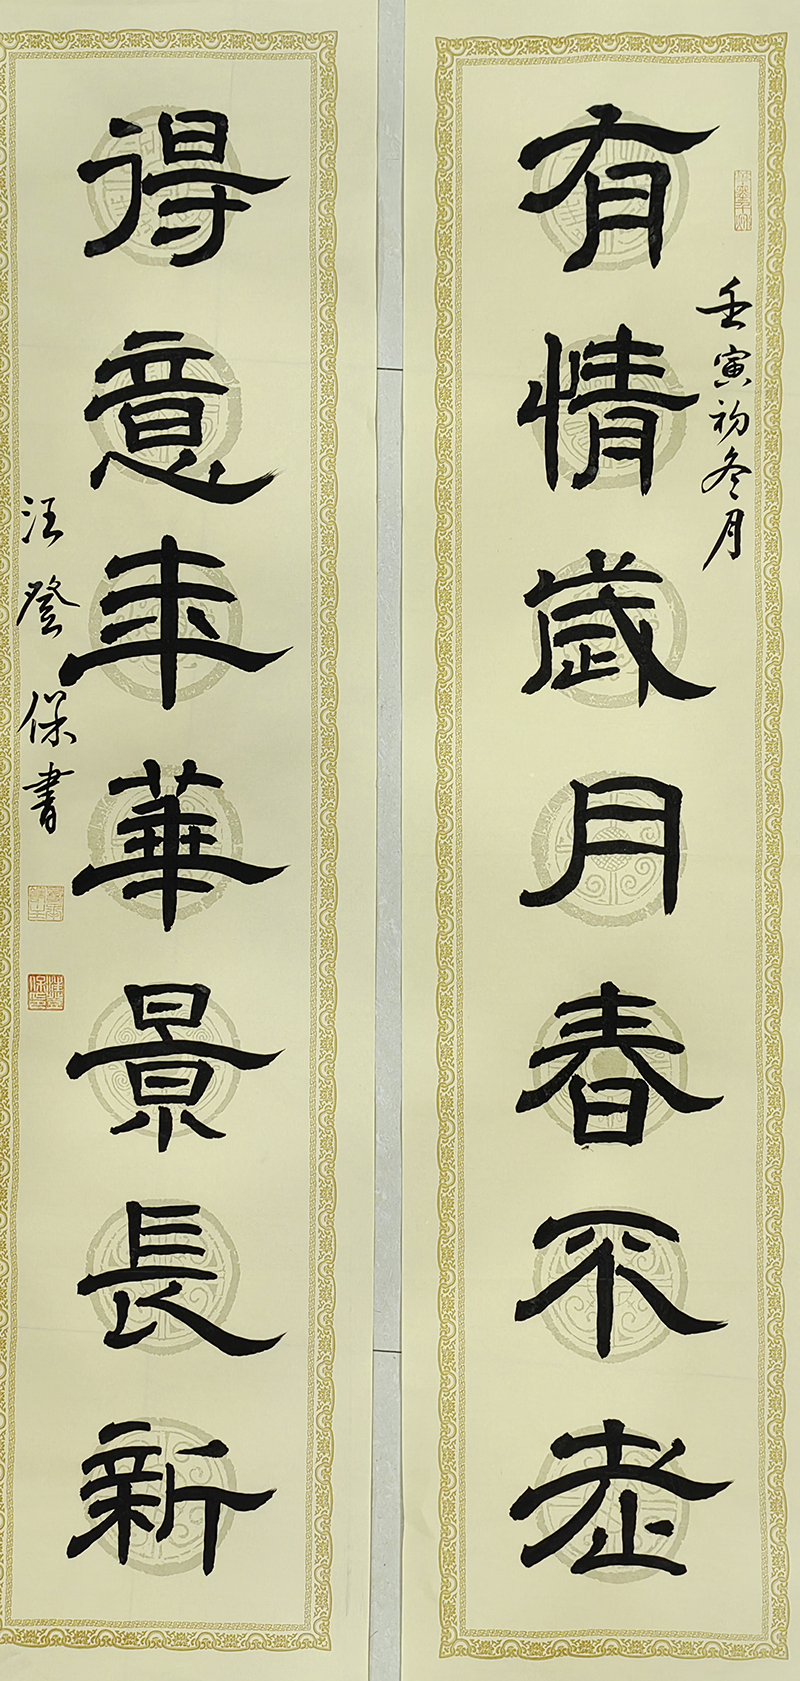 有情歲月春不老
壬寅初冬月
得意年華景長新
汪登保書